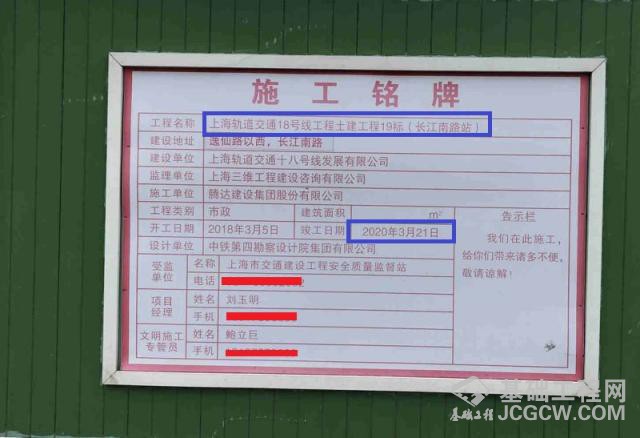 施工铭牌
工程名称 上海轨道交通18号线工程土建工程19标（长江南路站）
建设地址 逸仙路以西，长江南路
建设单位 上海轨道交通十八号线发展有限公司
监理单位 上海三维工程建设咨询有限公司
施工单位 腾达建设集团股份有限公司
工程类别 市政 建筑面积 m²
开工日期 2018年3月5日 竣工日期 2020年3月21日
设计单位 中铁第四勘察设计院集团有限公司
受监单位 名称 上海市交通建设工程安全质量监督站
电话
项目经理 姓名 刘玉明
手机
文明施工专管员 姓名 鲍立巨
手机
告示栏
我们在此施工，
给你们带来诸多不便，
敬请谅解！
基础工程网
基础工程 JCGCW.COM